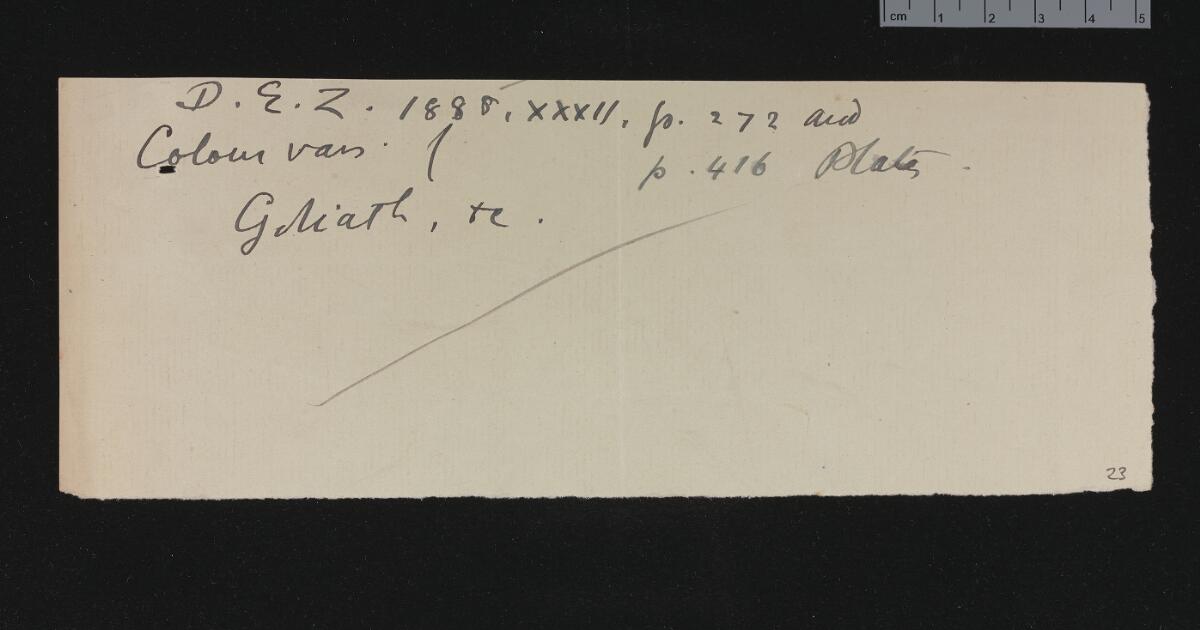 D. E. Z. 1888, XXXII, p. 272 and
Colour vars. (
p. 416 Plates.
Goliath, &c.
23
cm 1 2 3 4 5